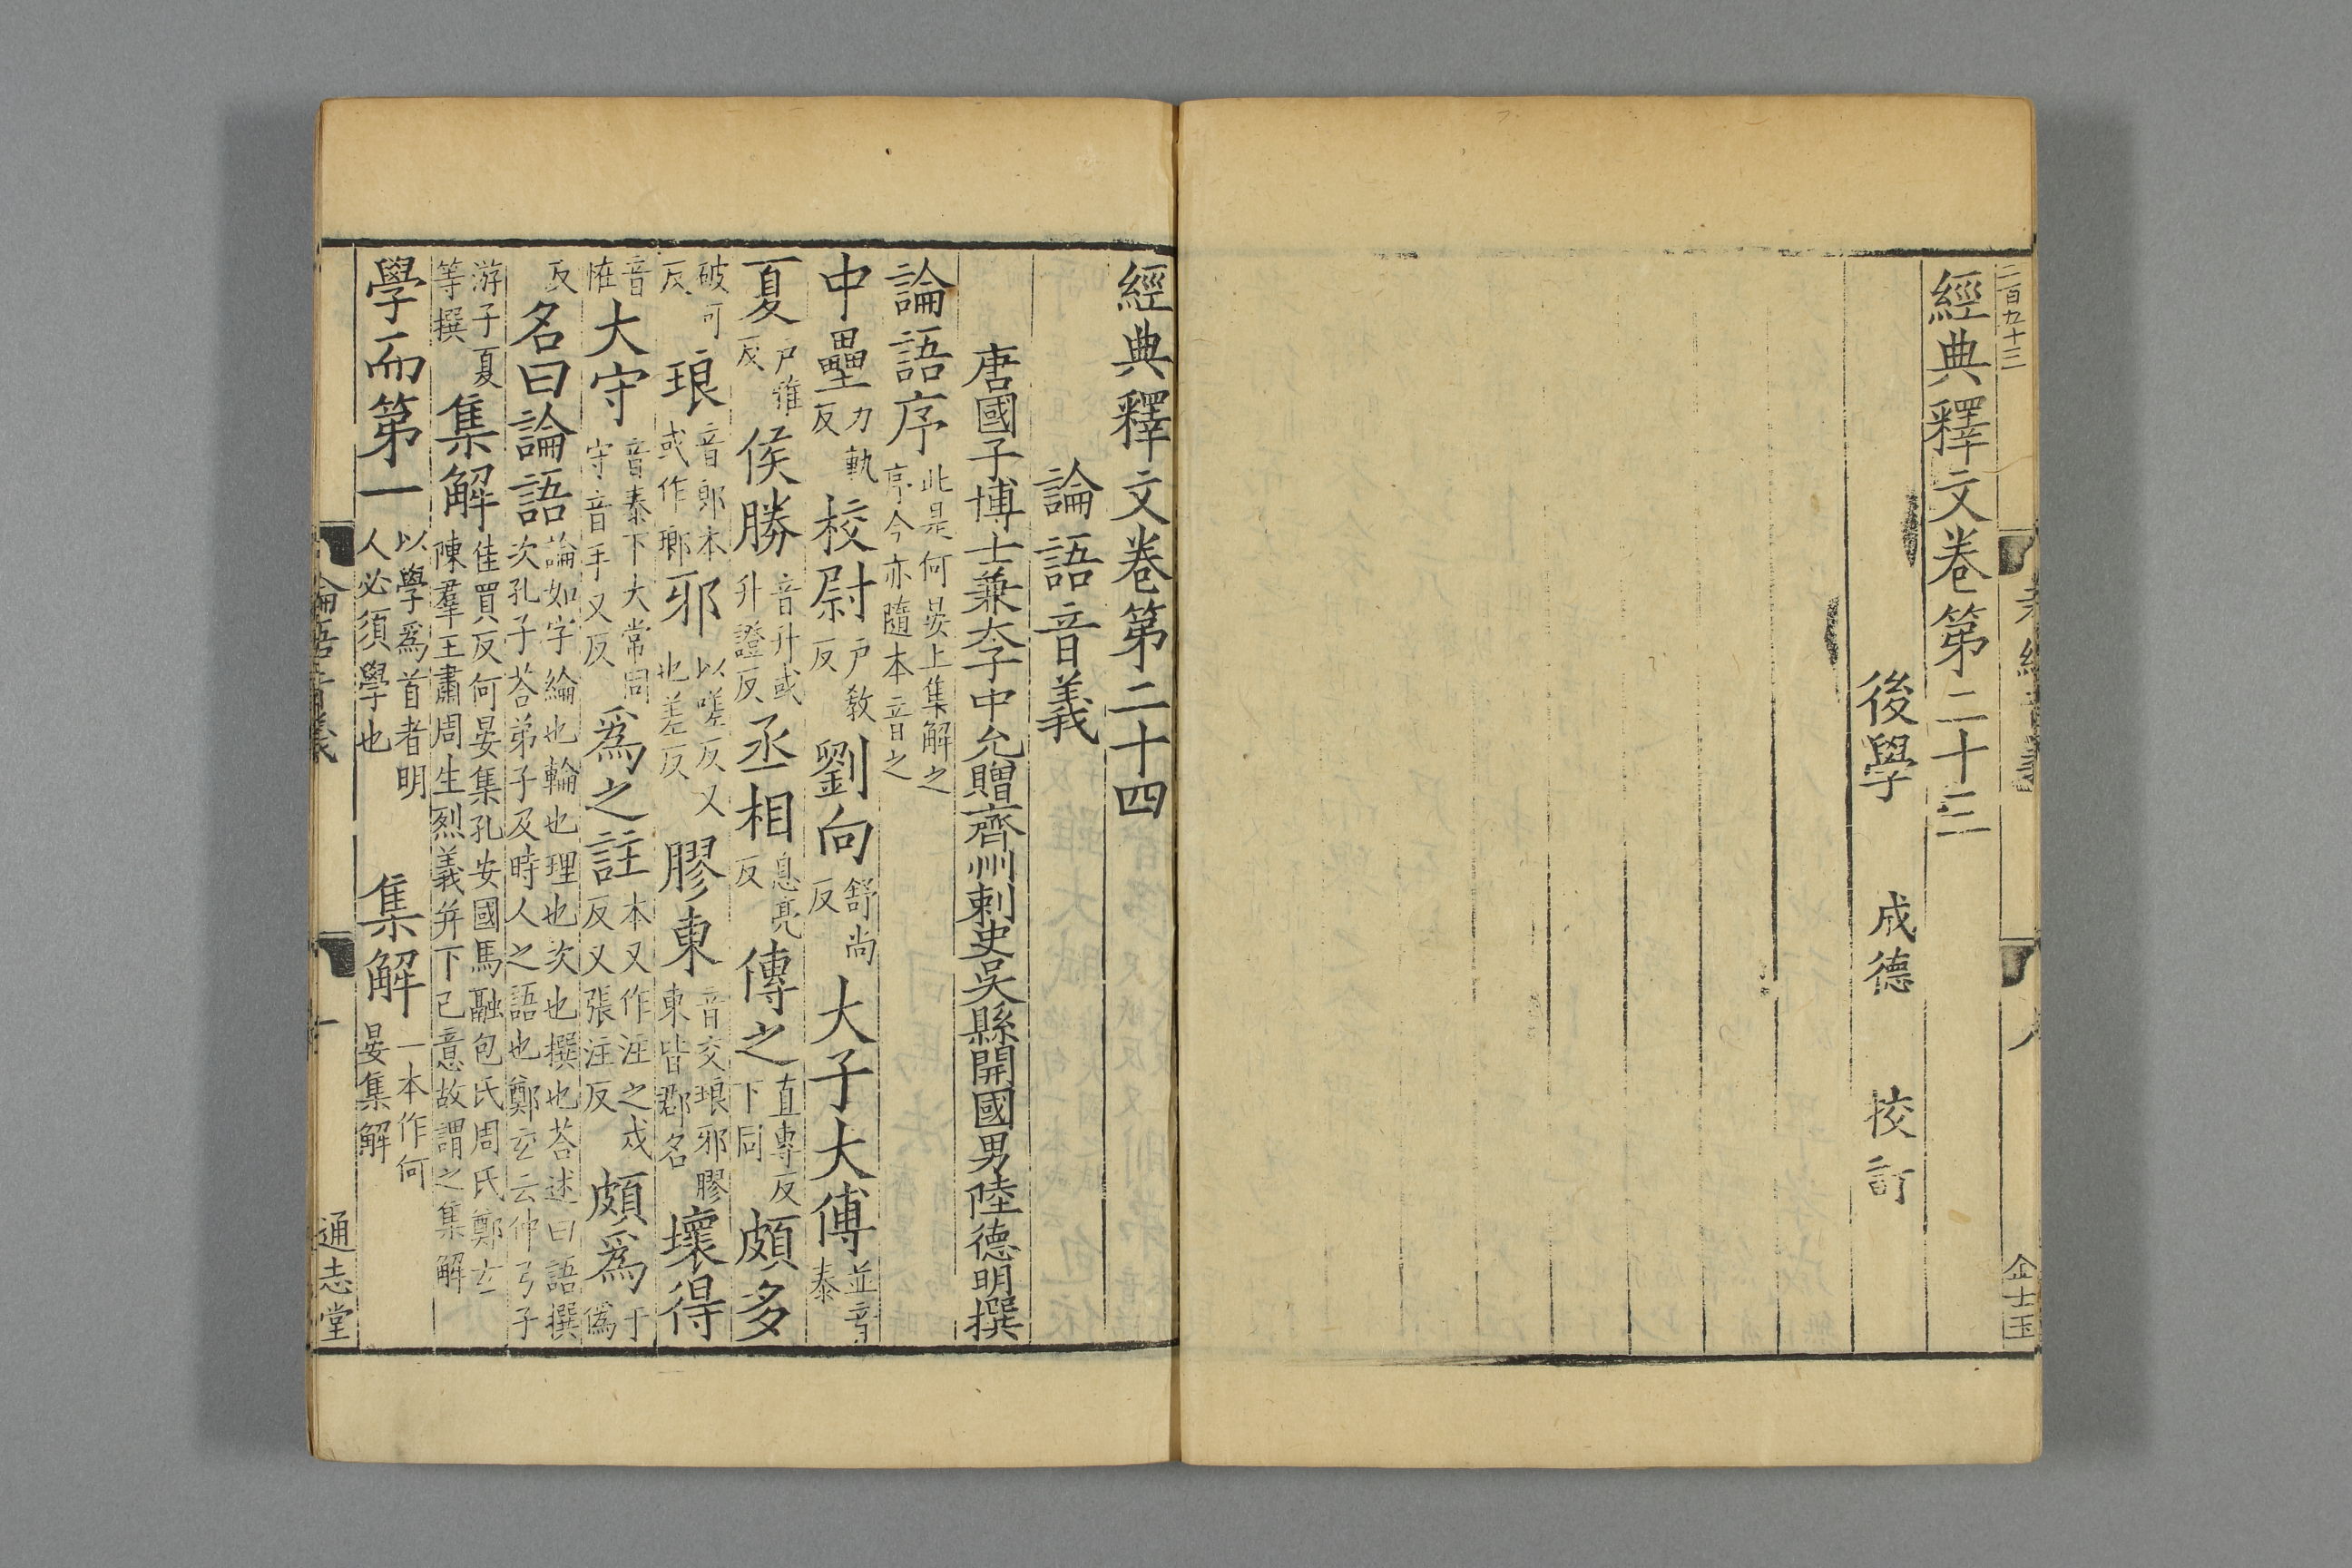 二百九十三
經典釋文卷第二十三
後學 成德 挍訂
孝經音義 八
金士玉
經典釋文卷第二十四
論語音義
唐國子博士兼太子中允贈齊州刺史吳縣開國男陸德明撰
論語序此是何晏上集解之序今亦隨本音之
中壘力軌反校尉戶教反劉向舒尚反大子大傅並音泰
夏戶雅反侯勝音升或升證反丞相息亮反傳之直專反下同頗多
破可反琅音郎本或作瑯邪以嗟反又也差反膠東音交琅邪膠東皆郡名壞得
音恠大守音泰下大常同守音手又反爲之註本又作注之戍反又張注反頗爲于僞
反名曰論語論如字綸也輪也理也次也撰也荅述曰語撰次孔子荅弟子及時人之語也鄭玄云仲弓子
游子夏等撰集解佳買反何晏集孔安國馬融包氏周氏鄭玄陳羣王肅周生烈義并下己意故謂之集解
學而第一以學爲首者明人必須學也 集解一本作何晏集解
論語音義 一
通志堂